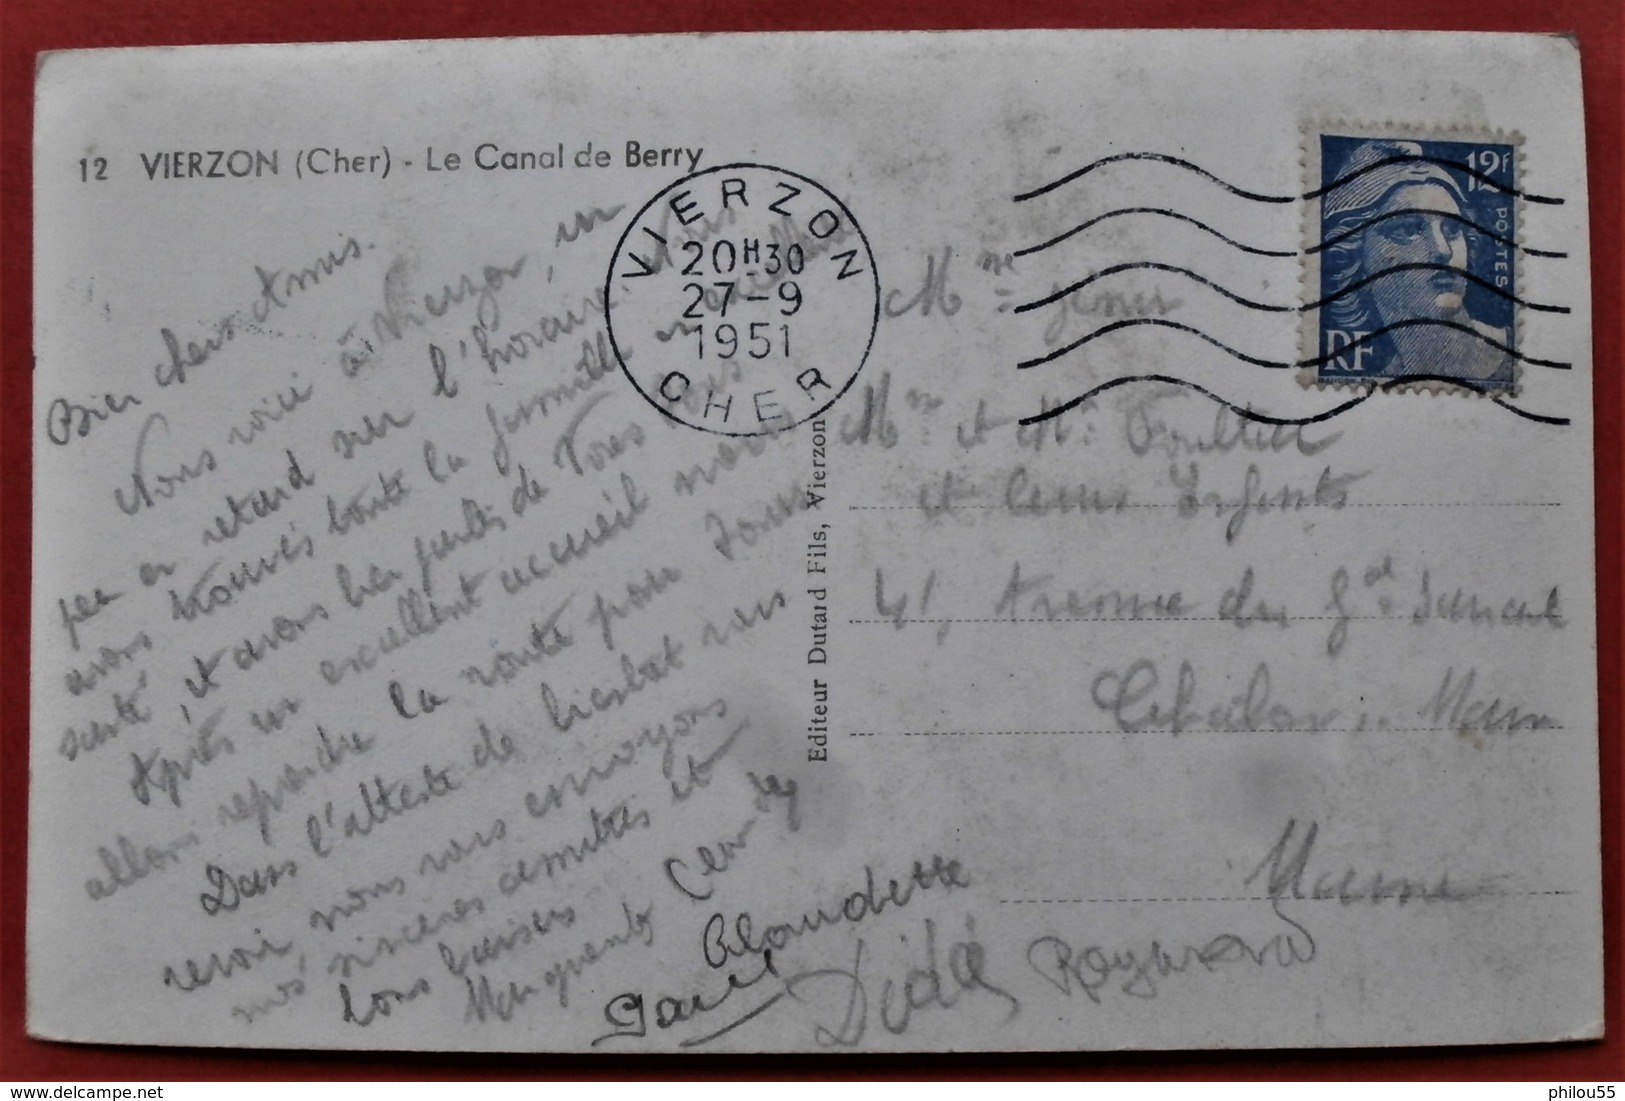 12 VIERZON (Cher) - Le Canal de Berry
VIERZON
20H30
27-9
1951
CHER
12F
POSTES
RF
Bien chers Amis.
Nous voici à Vierzon, un
peu en retard sur l'horaire. Nous
avons trouvés toute la famille en excellente
santé, et avons parlés de Vous tous
Après un excellent accueil nous
allons reprendre la route pour Tours
Dans l'attente de bientôt vous
revoir, nous vous envoyons
nos sincères amitiés et
bons baisers
Marguerite
Claudette
Paul
Dédé
Editeur Dutard Fils, Vierzon
Mme
Mr et Me
et leurs Enfants
41, Avenue du Gal
Chalon s Marne
Marne
delcampe.net
philou55